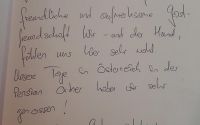 freundliche und aufmerksame Gast-
freundschaft Wir - und der Hund,
fühlen uns hier sehr wohl
Unsere Tage in Österreich in der
Pension haben wir sehr
genossen!